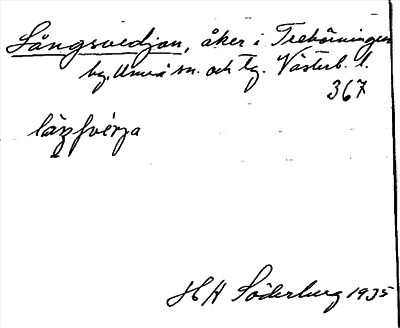 Långsvedjan, åker i Trehörningen
by, Umeå sn. och tg. Västerb. l.
367
HH Söderburg 1935